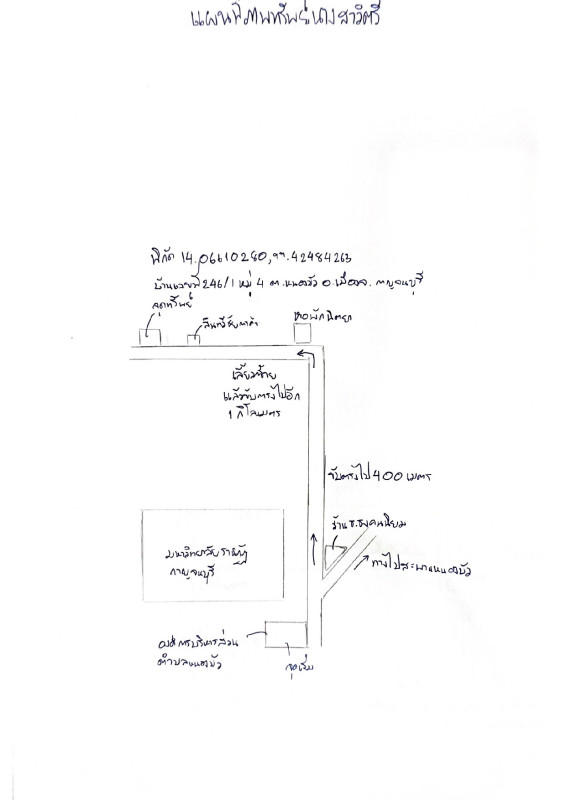 แผนที่ภาพทรัพย์นางสาวิตรี
พิกัด 14.06610280,99.42484263
บ้านเลขที่ 246/1 หมู่ 4 ต.หนองบัว อ.เมือง จ.กาญจนบุรี
จุดทรัพย์
สินทวีชัยคาค้า
หอพักนิตยา
เลี้ยวซ้าย
แล้วขับตรงไปอีก
1 กิโลเมตร
ขับตรงไป 400 เมตร
ร้าน ช.ธงคนนิยม
มหาวิทยาลัยราชภัฏ
กาญจนบุรี
ทางไปสะพานหนองบัว
องค์การบริหารส่วน
ตำบลหนองบัว
จุดเริ่ม